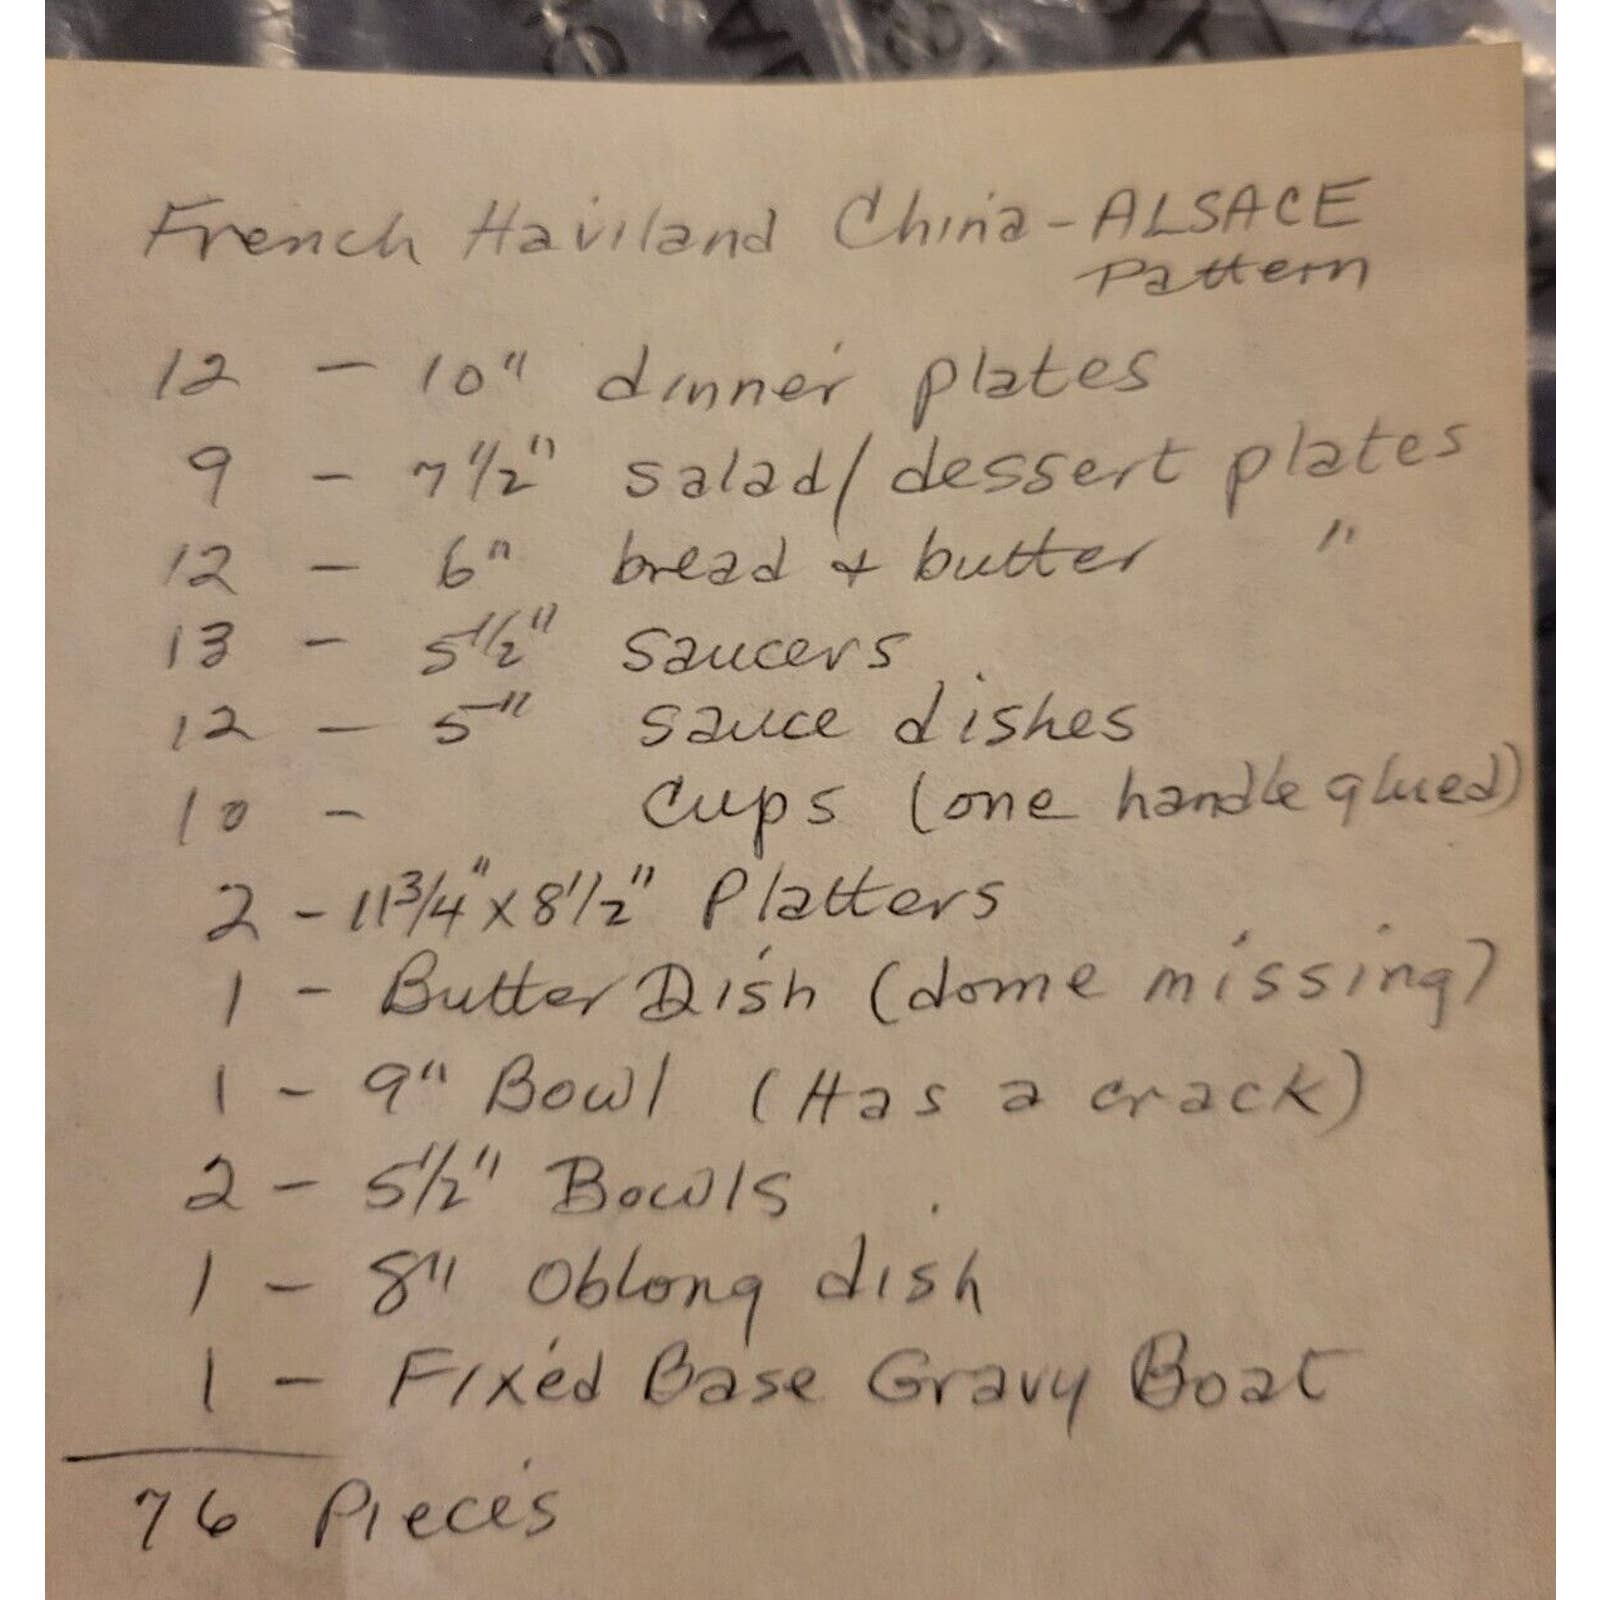 French Haviland China - ALSACE
Pattern
12 - 10" dinner plates
9 - 7 1/2" salad/dessert plates
12 - 6" bread & butter "
13 - 5 1/2" saucers
12 - 5" sauce dishes
10 - cups (one handle glued)
2 - 11 3/4" x 8 1/2" Platters
1 - Butter Dish (dome missing)
1 - 9" Bowl (Has a crack)
2 - 5 1/2" Bowls
1 - 8" Oblong dish
1 - Fixed Base Gravy Boat
76 Pieces